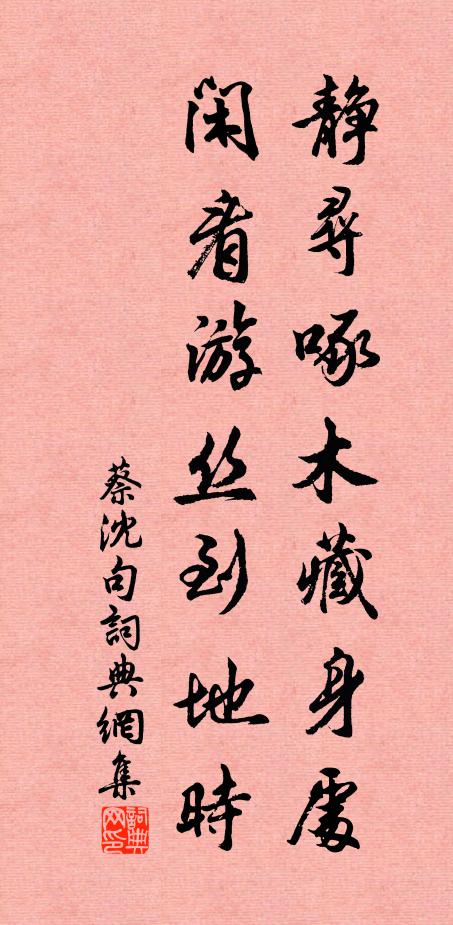 静尋啄木藏身處
閑看游丝到地時
蔡沈句詞典網集
詞典网印